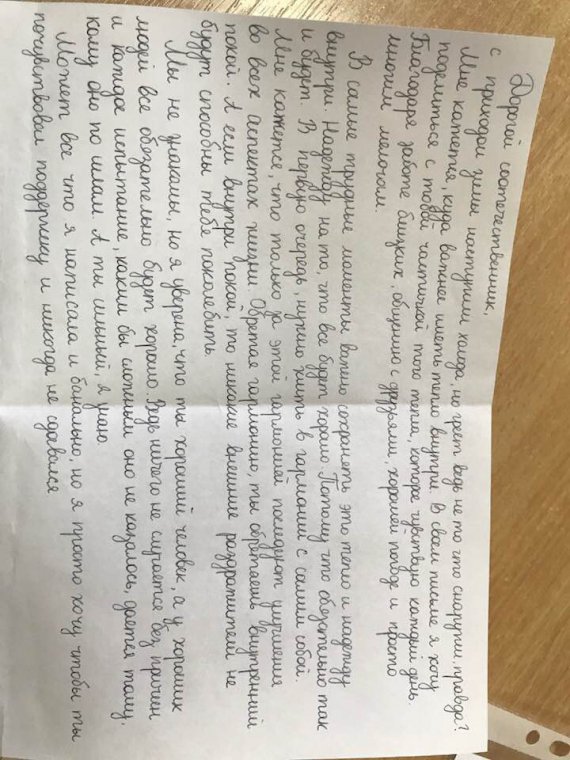 Дорогой соотечественник,
с приходом зимы наступили холода, но греет ведь не то что снаружи, правда?
Мне кажется, куда важнее иметь тепло внутри. В своем письме я хочу
поделиться с тобой частичкой того тепла, которое чувствую каждый день.
Благодаря заботе близких, общению с друзьями, хорошей погоде и просто
многим мелочам.
В самые трудные моменты важно сохранять это тепло и надежду
внутри. Надежду на то, что все будет хорошо. Потому что обязательно так
и будет. В первую очередь, нужно жить в гармонии с самим собой.
Мне кажется, что только за этой гармонией последуют улучшения
во всех аспектах жизни. Обретая гармонию, ты обретаешь внутренний
покой. А если внутри покой, то никакие внешние раздражители не
будут способны тебя поколебить.
Мы не знакомы, но я уверена, что ты хороший человек, а у хороших
людей все обязательно будет хорошо. Ведь ничего не случается без причин
и каждое испытание, каким бы сложным оно не казалось, дается тому,
кому оно по силам. А ты сильный, я знаю
Может все что я написала и банально, но я просто хочу чтобы ты
почувствовал поддержку и никогда не сдавался